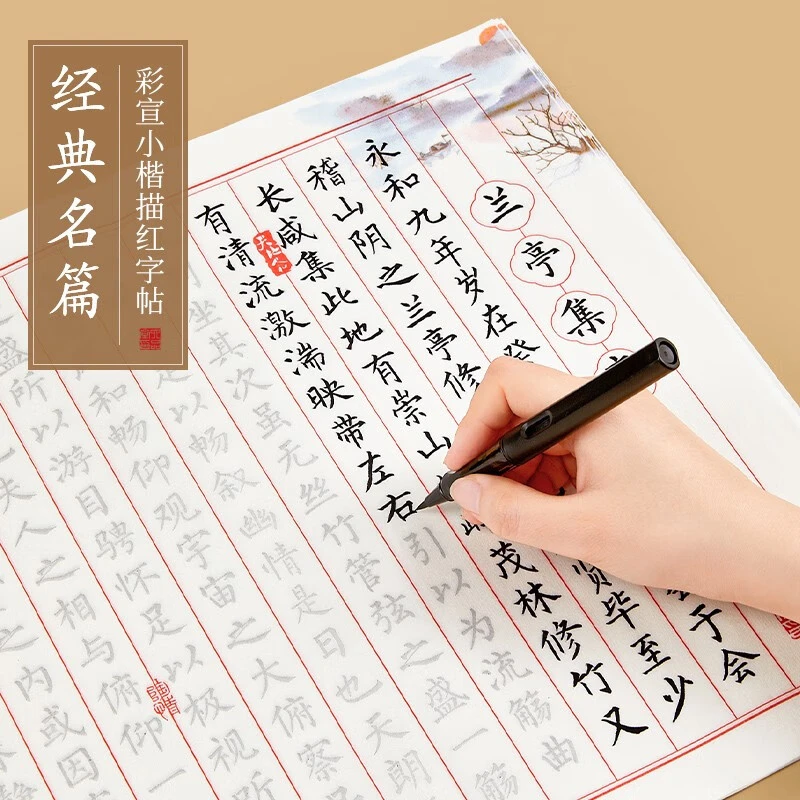 经典名篇
彩宣小楷描红字帖
兰亭集
永和九年岁在癸于会
稽山阴之兰亭修贤毕至少
长咸集此地有崇山茂林修竹又
有清流激湍映带左右引以为流觞曲
坐其次虽无丝竹管弦之盛一觞
以畅叙幽情是日也天朗
和畅仰观宇宙之大俯察
盛所以游目骋怀足以极视
夫人之相与俯仰一
之内或因